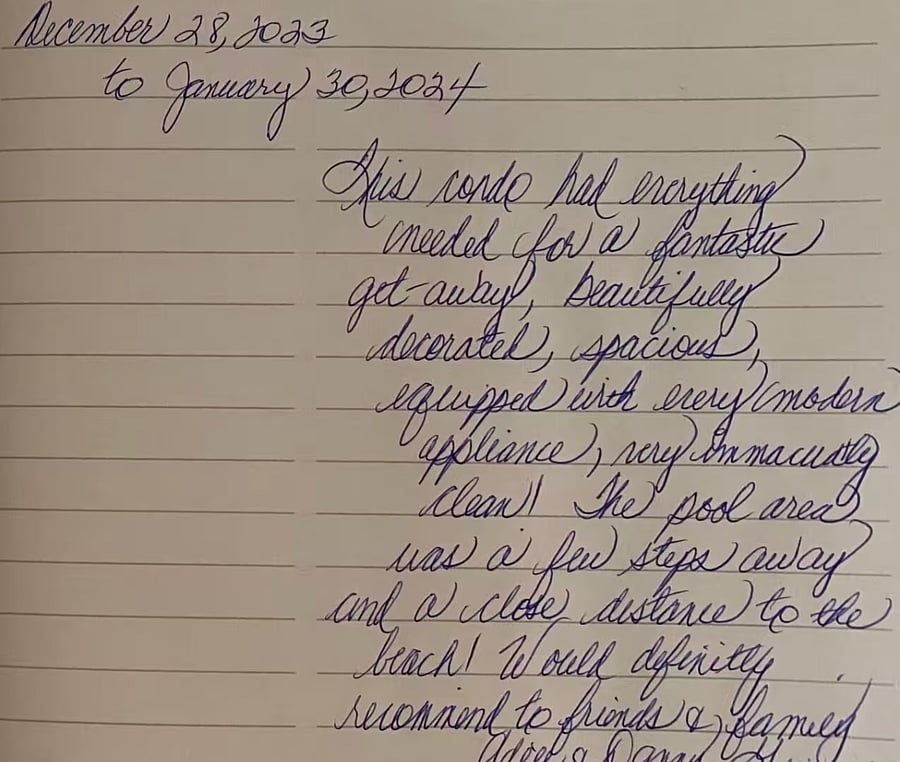 December 28, 2023
to January 30, 2024
This condo had everything
needed for a fantastic
get-away, beautifully
decorated, spacious,
equipped with every modern
appliance, very immaculatly
clean!! The pool area
was a few steps away
and a close distance to the
beach! Would definitly
recommend to friends & family